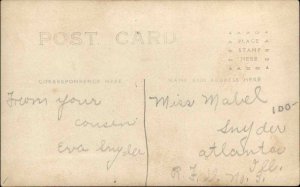 POST CARD
PLACE
STAMP
HERE
CORRESPONDENCE HERE
NAME AND ADDRESS HERE
From your
cousin
Eva Snyder
Miss Mabel
100-
Snyder
atlanta
Ill.
R. F. D. No. 3.